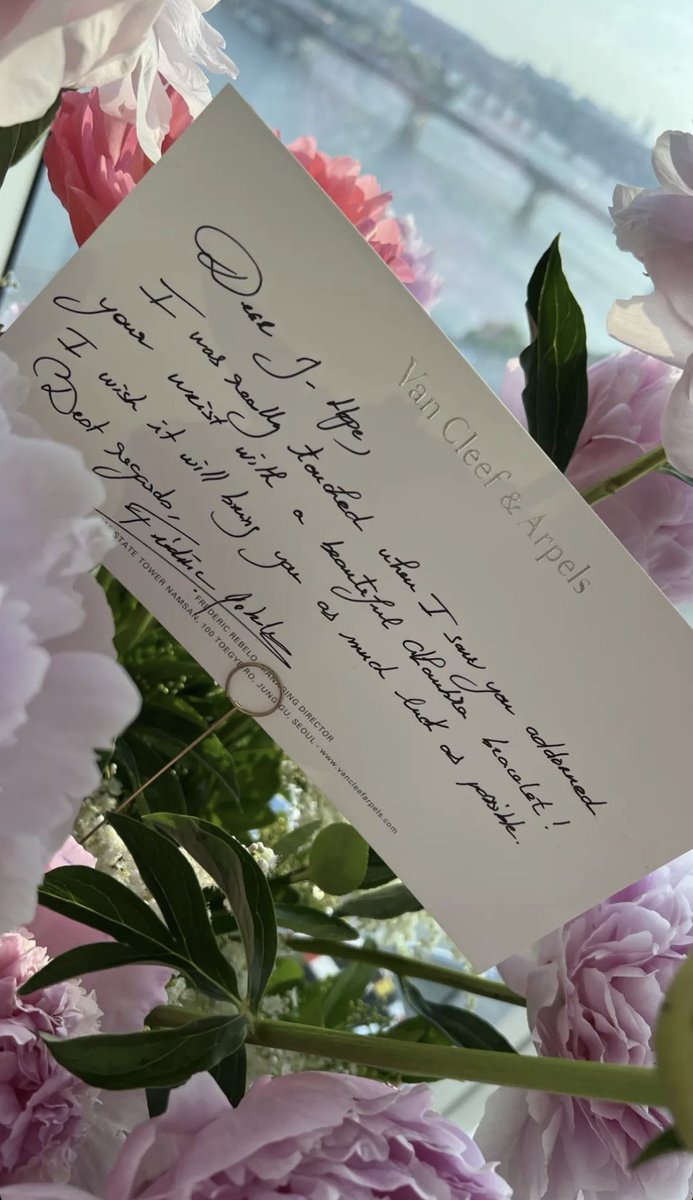 Van Cleef & Arpels
Dear J-Hope,
I was really touched when I saw you addorned
your wrist with a beautiful Alhambra bracelet!
I wish it will bring you as much luck as possible.
Best regards,
FREDERIC REBELO MANAGING DIRECTOR
STATE TOWER NAMSAN, 100 TOEGYERO, JUNG-GU, SEOUL - www.vancleefarpels.com